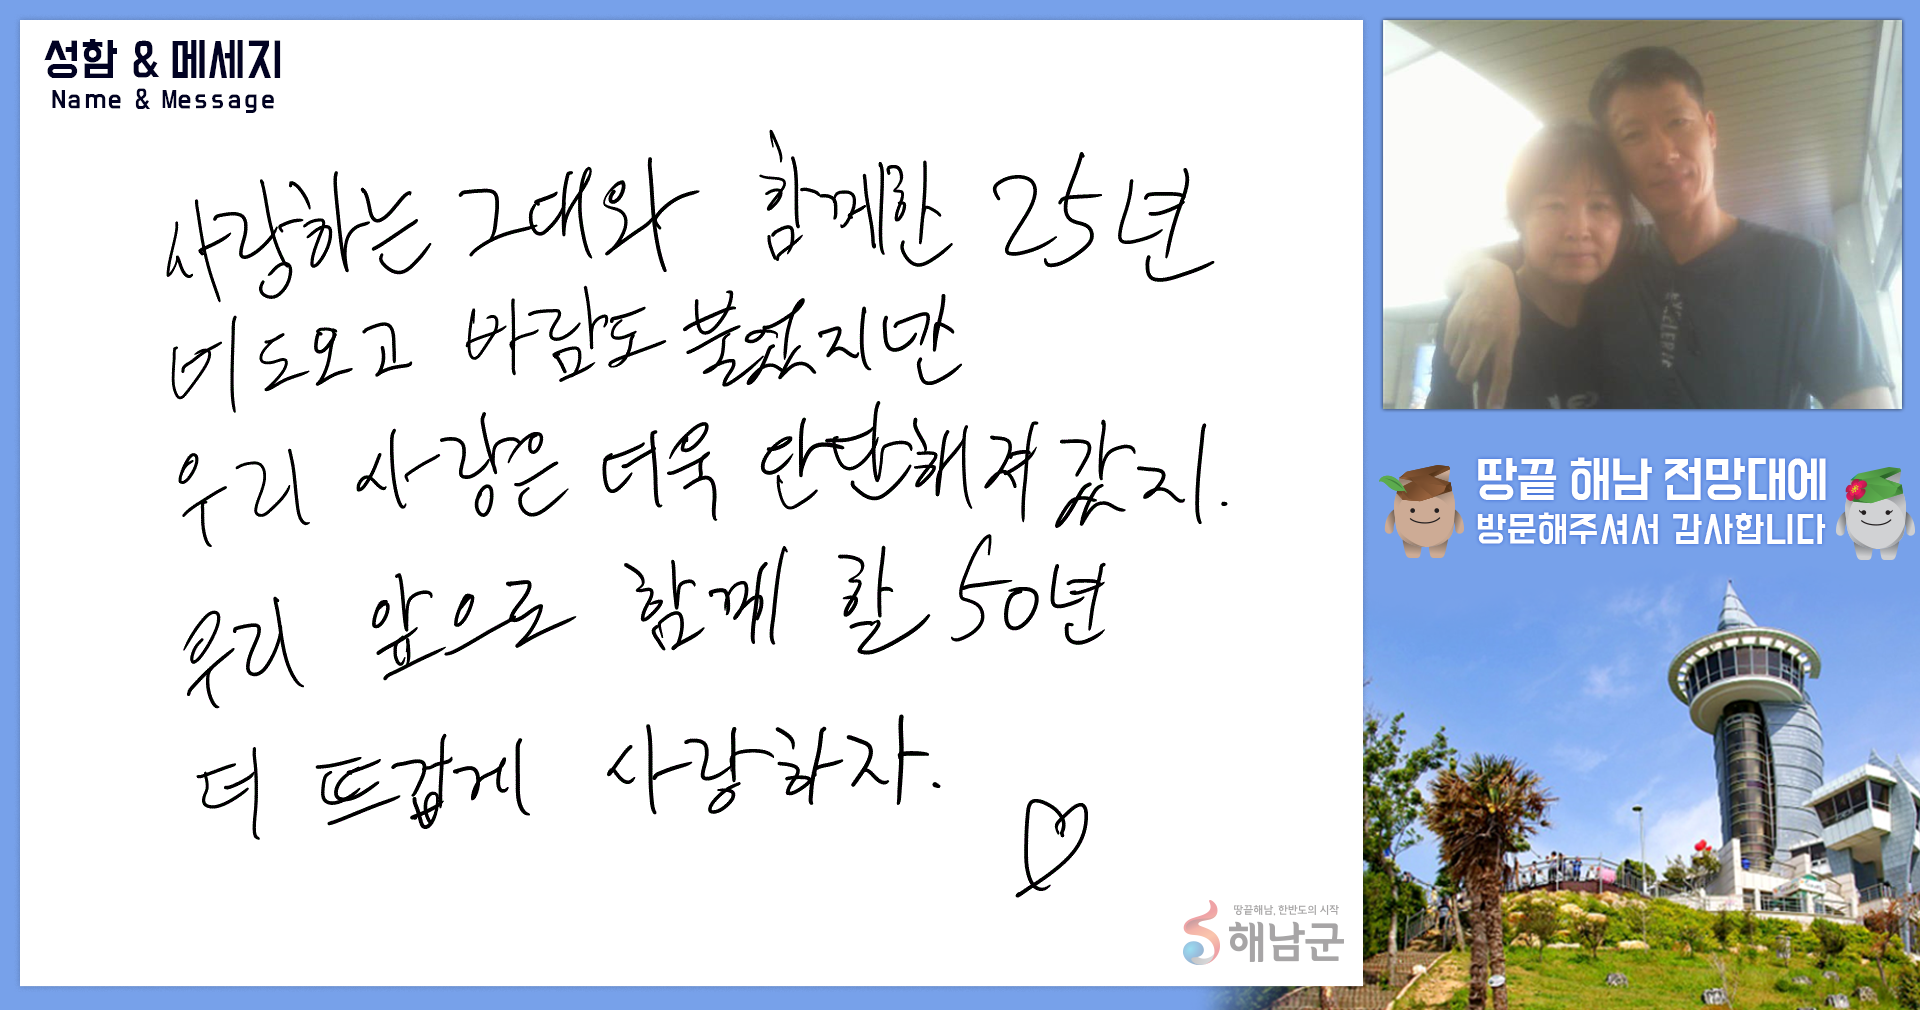 성함 & 메세지
Name & Message
사랑하는 그대와 함께한 25년
비도오고 바람도 불었지만
우리 사랑은 더욱 단단해져갔지.
우리 앞으로 함께 할 50년
더 뜨겁게 사랑하자.
땅끝해남, 한반도의 시작
해남군
땅끝 해남 전망대에
방문해주셔서 감사합니다